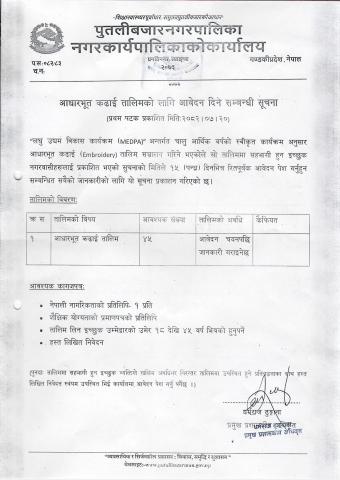 पुतलीबजारनगरपालिका
नगरकार्यपालिकाकोकार्यालय
प.स:०८२।८३
च.न:
गण्डकीप्रदेश, नेपाल
२०७३
आधारभूत कढाई तालिमको लागि आवेदन दिने सम्बन्धी सूचना
(प्रथम पटक प्रकाशित मिति:२०८२।०७।२०)
"लघु उद्यम विकास कार्यक्रम (MEDPA)" अन्तर्गत चालु आर्थिक वर्षको स्वीकृत कार्यक्रम अनुसार
आधारभूत कढाई (Embroidery) तालिम सञ्चालन गरिने भएकोले सो तालिममा सहभागी हुन इच्छुक
नगरवासीहरुलाई प्रकाशित भएको सुचनाको मितिले १५ (पन्ध्र) दिनभित्र रितपूर्वक आवेदन पेश गर्नुहुन
सम्बन्धित सबैको जानकारीको लागि यो सूचना प्रकाशन गरिएको छ।
तालिमको विवरण:
क्र स तालिमको विषय आवश्यक संख्या तालिमको अवधि कैफियत
१ आधारभूत कढाई तालिम ४५ आवेदन चयनपछि
जानकारी गराइनेछ
आवश्यक कागजपत्र:
• नेपाली नागरिकताको प्रतिलिपि- १ प्रति
• शैक्षिक योग्यताको प्रमाणपत्रको प्रतिलिपि
• तालिम लिन इच्छुक उम्मेद्वारको उमेर १८ देखि ४५ वर्ष भित्रको हुनुपर्ने
• हस्त लिखित निवेदन
(पुनश्च: तालिममा सहभागी हुन इच्छुक व्यक्तिले तालिम अवधिभर निरन्तर तालिममा उपस्थित हुने प्रतिबद्धताका साथ हस्त
लिखित निवेदन स्वयम उपस्थित भई कार्यालयमा आवेदन पेश गर्नु पर्नेछ ।)
धर्मराज ढुङ्गाना
प्रमुख प्रशासकीय अधिकृत